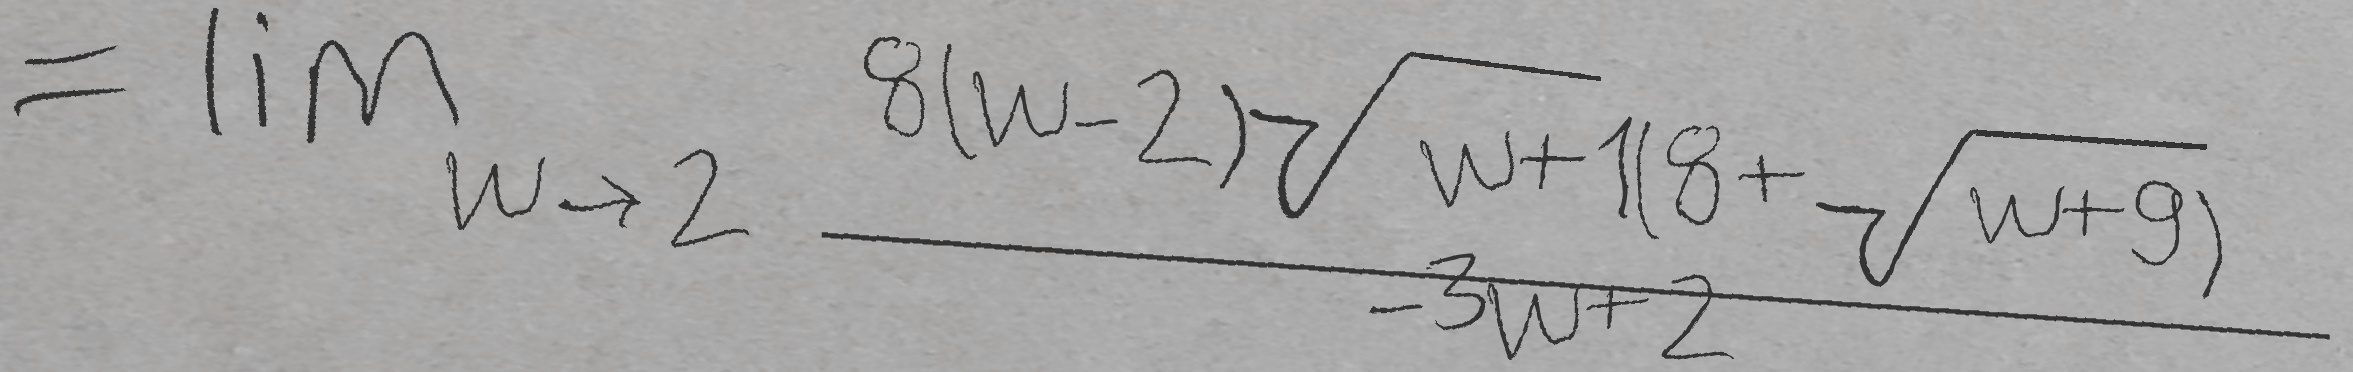 = \lim_{w \to 2} \frac{8(w-2)\sqrt{w+1}(8+\sqrt{w+9})}{-3w+2}